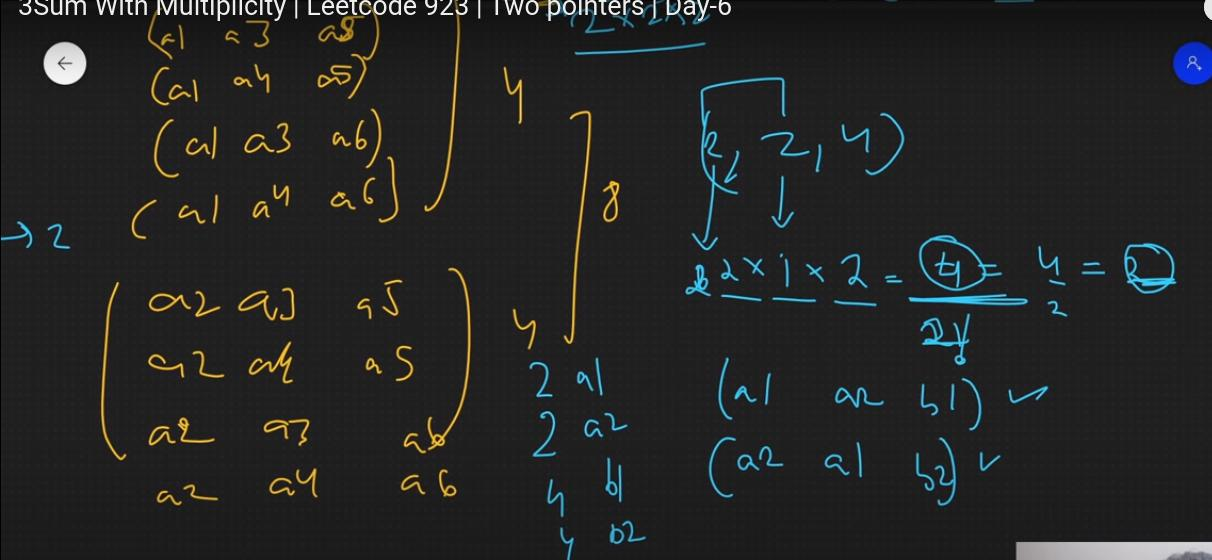 3Sum With Multiplicity | Leetcode 923 | Two pointers | Day-6
(a1 a3 a5)
(a1 a4 a5)
(a1 a3 a6)
(a1 a4 a6)
4
8
→ 2
a2 a3 a5
a2 a4 a5
a2 a3 a6
a2 a4 a6
4
2 a1
2 a2
4 b1
4 b2
(2, 2, 4)
2 × 1 × 2 = 4 = 4/2 = 2
2!
(a1 a2 b1) ✓
(a2 a1 b2) ✓